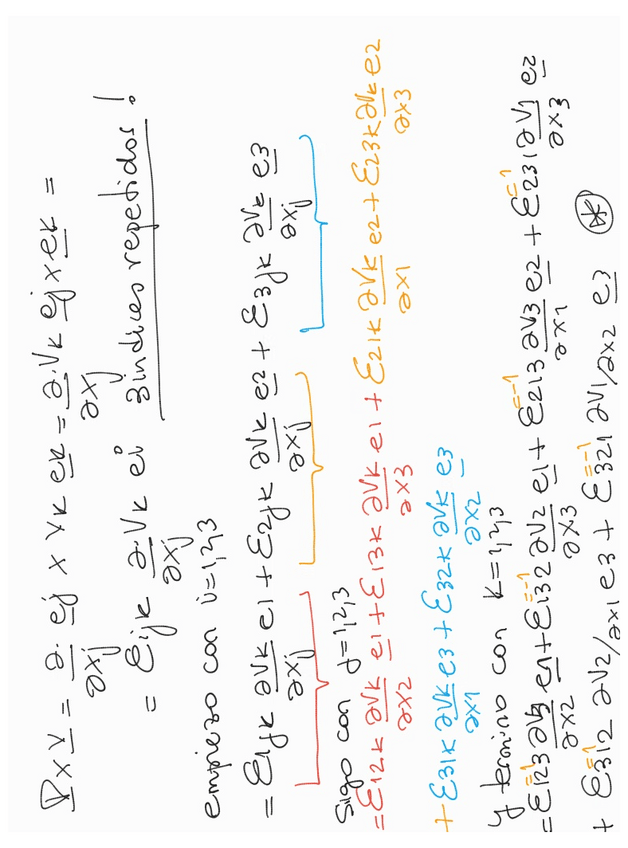 ∇ x v = ∂/∂xj ej x vk ek = ∂vk/∂xj ej x ek =
= εijk ∂vk/∂xj ei 3 indices repetidos!
empiezo con i=1,2,3
= ε1jk ∂vk/∂xj e1 + ε2jk ∂vk/∂xj e2 + ε3jk ∂vk/∂xj e3
Sigo con j=1,2,3
= ε12k ∂vk/∂x2 e1 + ε13k ∂vk/∂x3 e1 + ε21k ∂vk/∂x1 e2 + ε23k ∂vk/∂x3 e2
+ ε31k ∂vk/∂x1 e3 + ε32k ∂vk/∂x2 e3
y termino con k=1,2,3
=1 =-1 =-1 =1
= ε123 ∂v3/∂x2 e1 + ε132 ∂v2/∂x3 e1 + ε213 ∂v3/∂x1 e2 + ε231 ∂v1/∂x3 e2
=1 =-1
+ ε312 ∂v2/∂x1 e3 + ε321 ∂v1/∂x2 e3 *